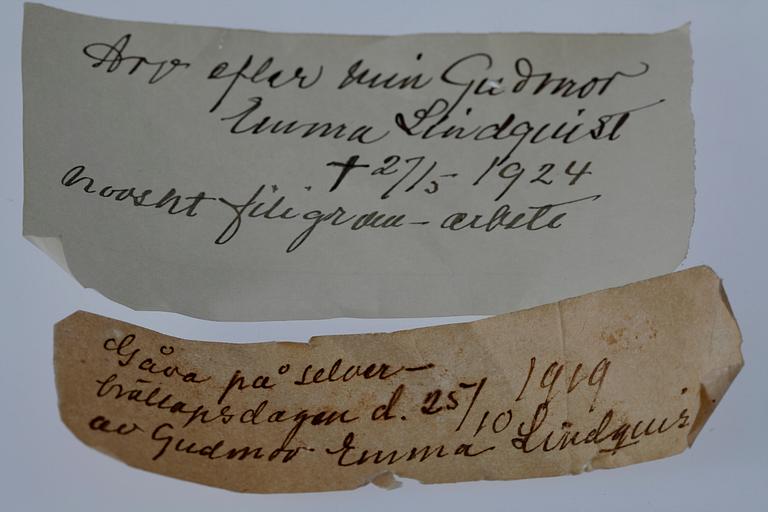 Arv efter min Gudmor
Emma Lindquist
† 27/5 1924
norskt filigran-arbete
Gåva på selver-
bröllopsdagen d. 25/10 1919
av Gudmor Emma Lindquist